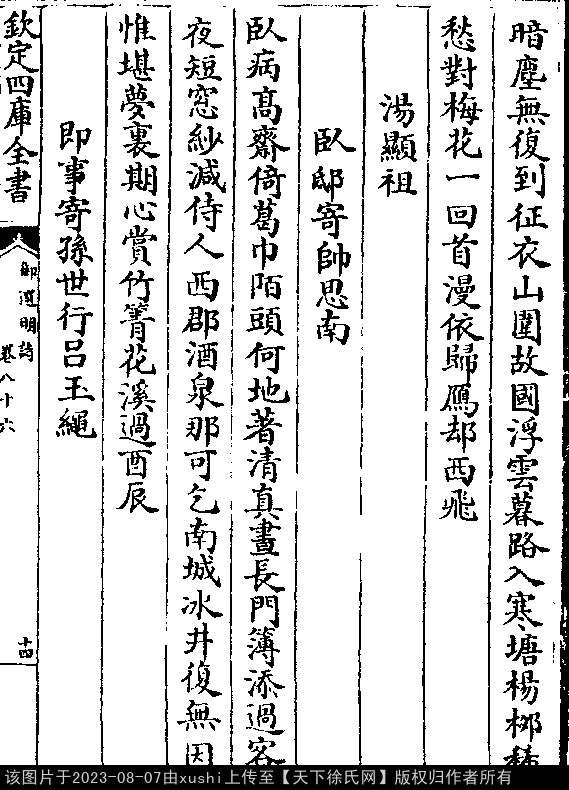 暗塵無復到征衣山圍故國浮雲暮路入寒塘楊桞稀
愁對梅花一回首漫依歸鴈却西飛
湯顯祖
臥邸寄帥思南
臥病髙齋倚葛巾陌頭何地著清真晝長門簿添過客
夜短窓紗減侍人西郡酒泉那可乞南城冰井復無因
惟堪夢裏期心賞竹箐花溪過酉辰
即事寄孫世行呂玉繩
欽定四庫全書
御選明詩
卷八十六
十四
该图片于2023-08-07由xushi上传至【天下徐氏网】版权归作者所有